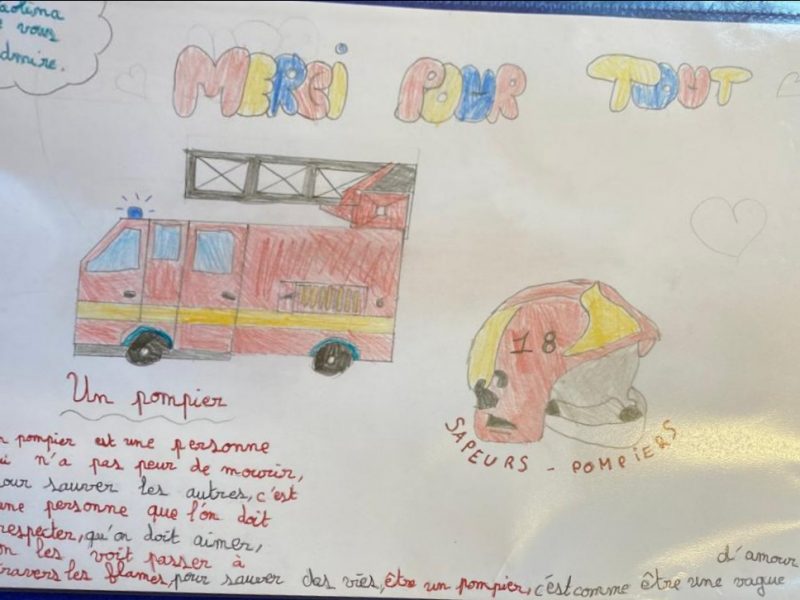 vous
MERCI POUR TOUT
18
SAPEURS - POMPIERS
Un pompier
pompier est une personne
n'a pas peur de mourir,
pour sauver les autres, c'est
une personne que l'on doit
respecter, qu'on doit aimer,
on les voit passer à
travers les flames, pour sauver des vies, être un pompier, c'est comme être une vague
d'amour